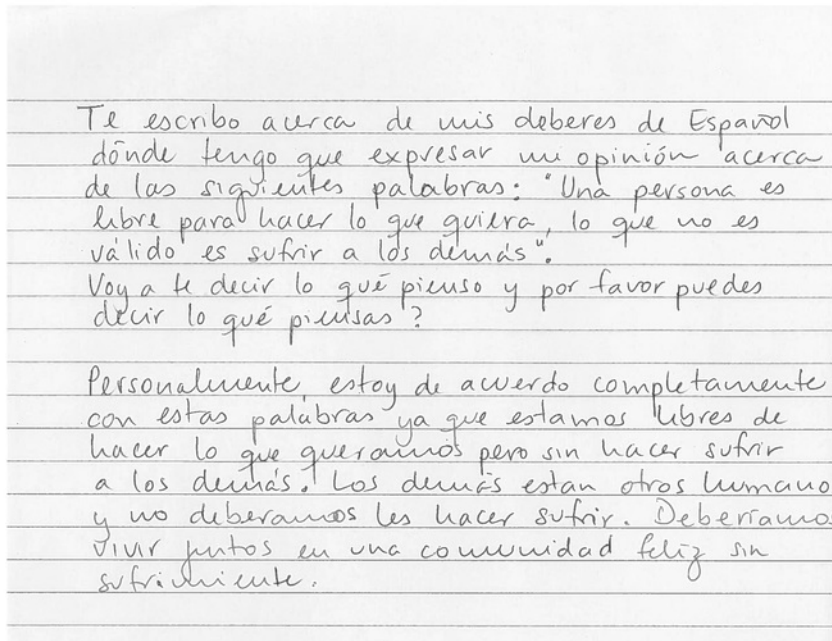 Te escribo acerca de mis deberes de Español
dónde tengo que expresar mi opinión acerca
de las siguientes palabras: "Una persona es
libre para hacer lo que quiera, lo que no es
válido es sufrir a los demás".
Voy a te decir lo qué pienso y por favor puedes
decir lo qué piensas?
Personalmente, estoy de acuerdo completamente
con estas palabras ya que estamos libres de
hacer lo que queramos pero sin hacer sufrir
a los demás. Los demás estan otros humano
y no deberamos les hacer sufrir. Deberíamos
vivir juntos en una comunidad feliz sin
sufrimiente.